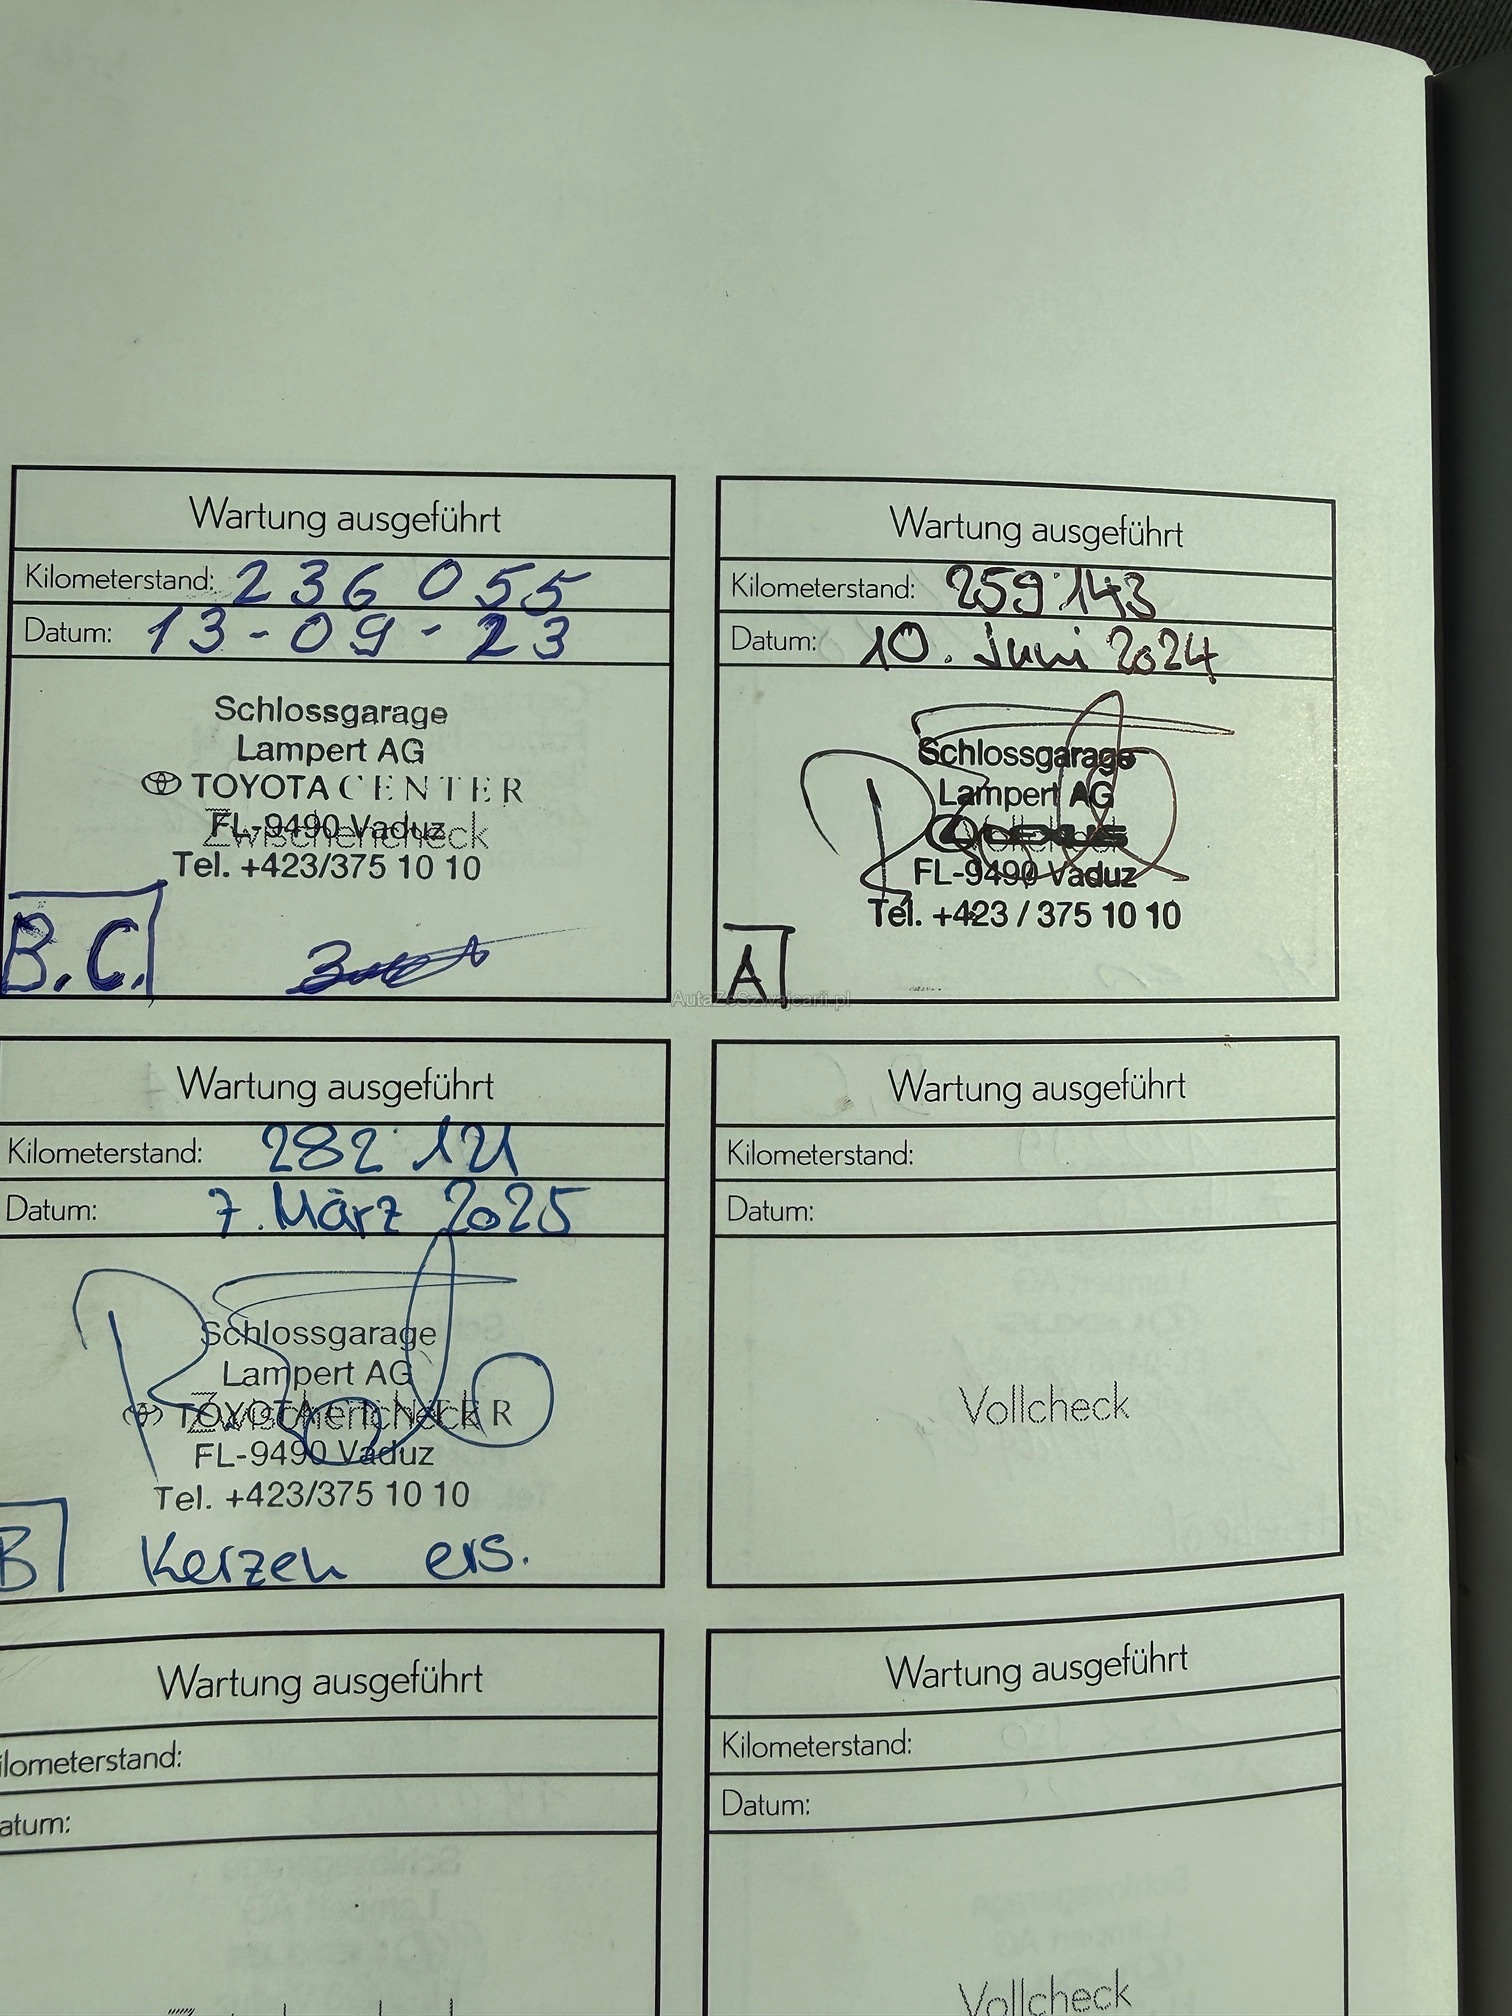 Wartung ausgeführt
Kilometerstand: 236 055
Datum: 13-09-23
Schlossgarage
Lampert AG
TOYOTA CENTER
FL-9490 Vaduz
Zwischencheck
Tel. +423/375 10 10
B.C.
Wartung ausgeführt
Kilometerstand: 259'143
Datum: 10. Juni 2024
Schlossgarage
Lampert AG
LEXUS
Vollcheck
FL-9490 Vaduz
Tel. +423 / 375 10 10
A
AutaZeSzwajcarii.pl
Wartung ausgeführt
Kilometerstand: 282'121
Datum: 7. März 2025
Schlossgarage
Lampert AG
TOYOTA CENTER
Zwischencheck
FL-9490 Vaduz
Tel. +423/375 10 10
B Kerzen ers.
Wartung ausgeführt
Kilometerstand:
Datum:
Vollcheck
Wartung ausgeführt
ilometerstand:
atum:
Wartung ausgeführt
Kilometerstand:
Datum:
Vollcheck